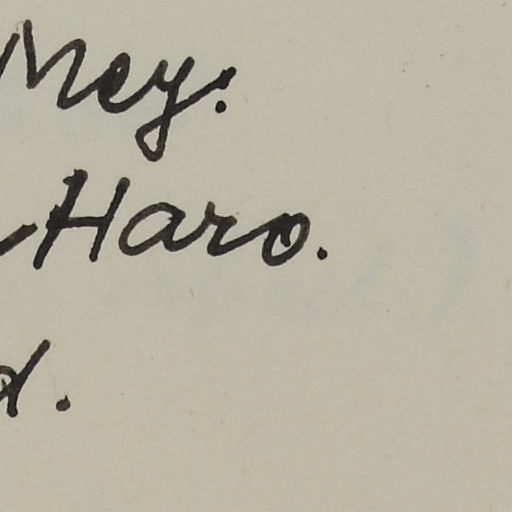 Mey:
Haro.
d.